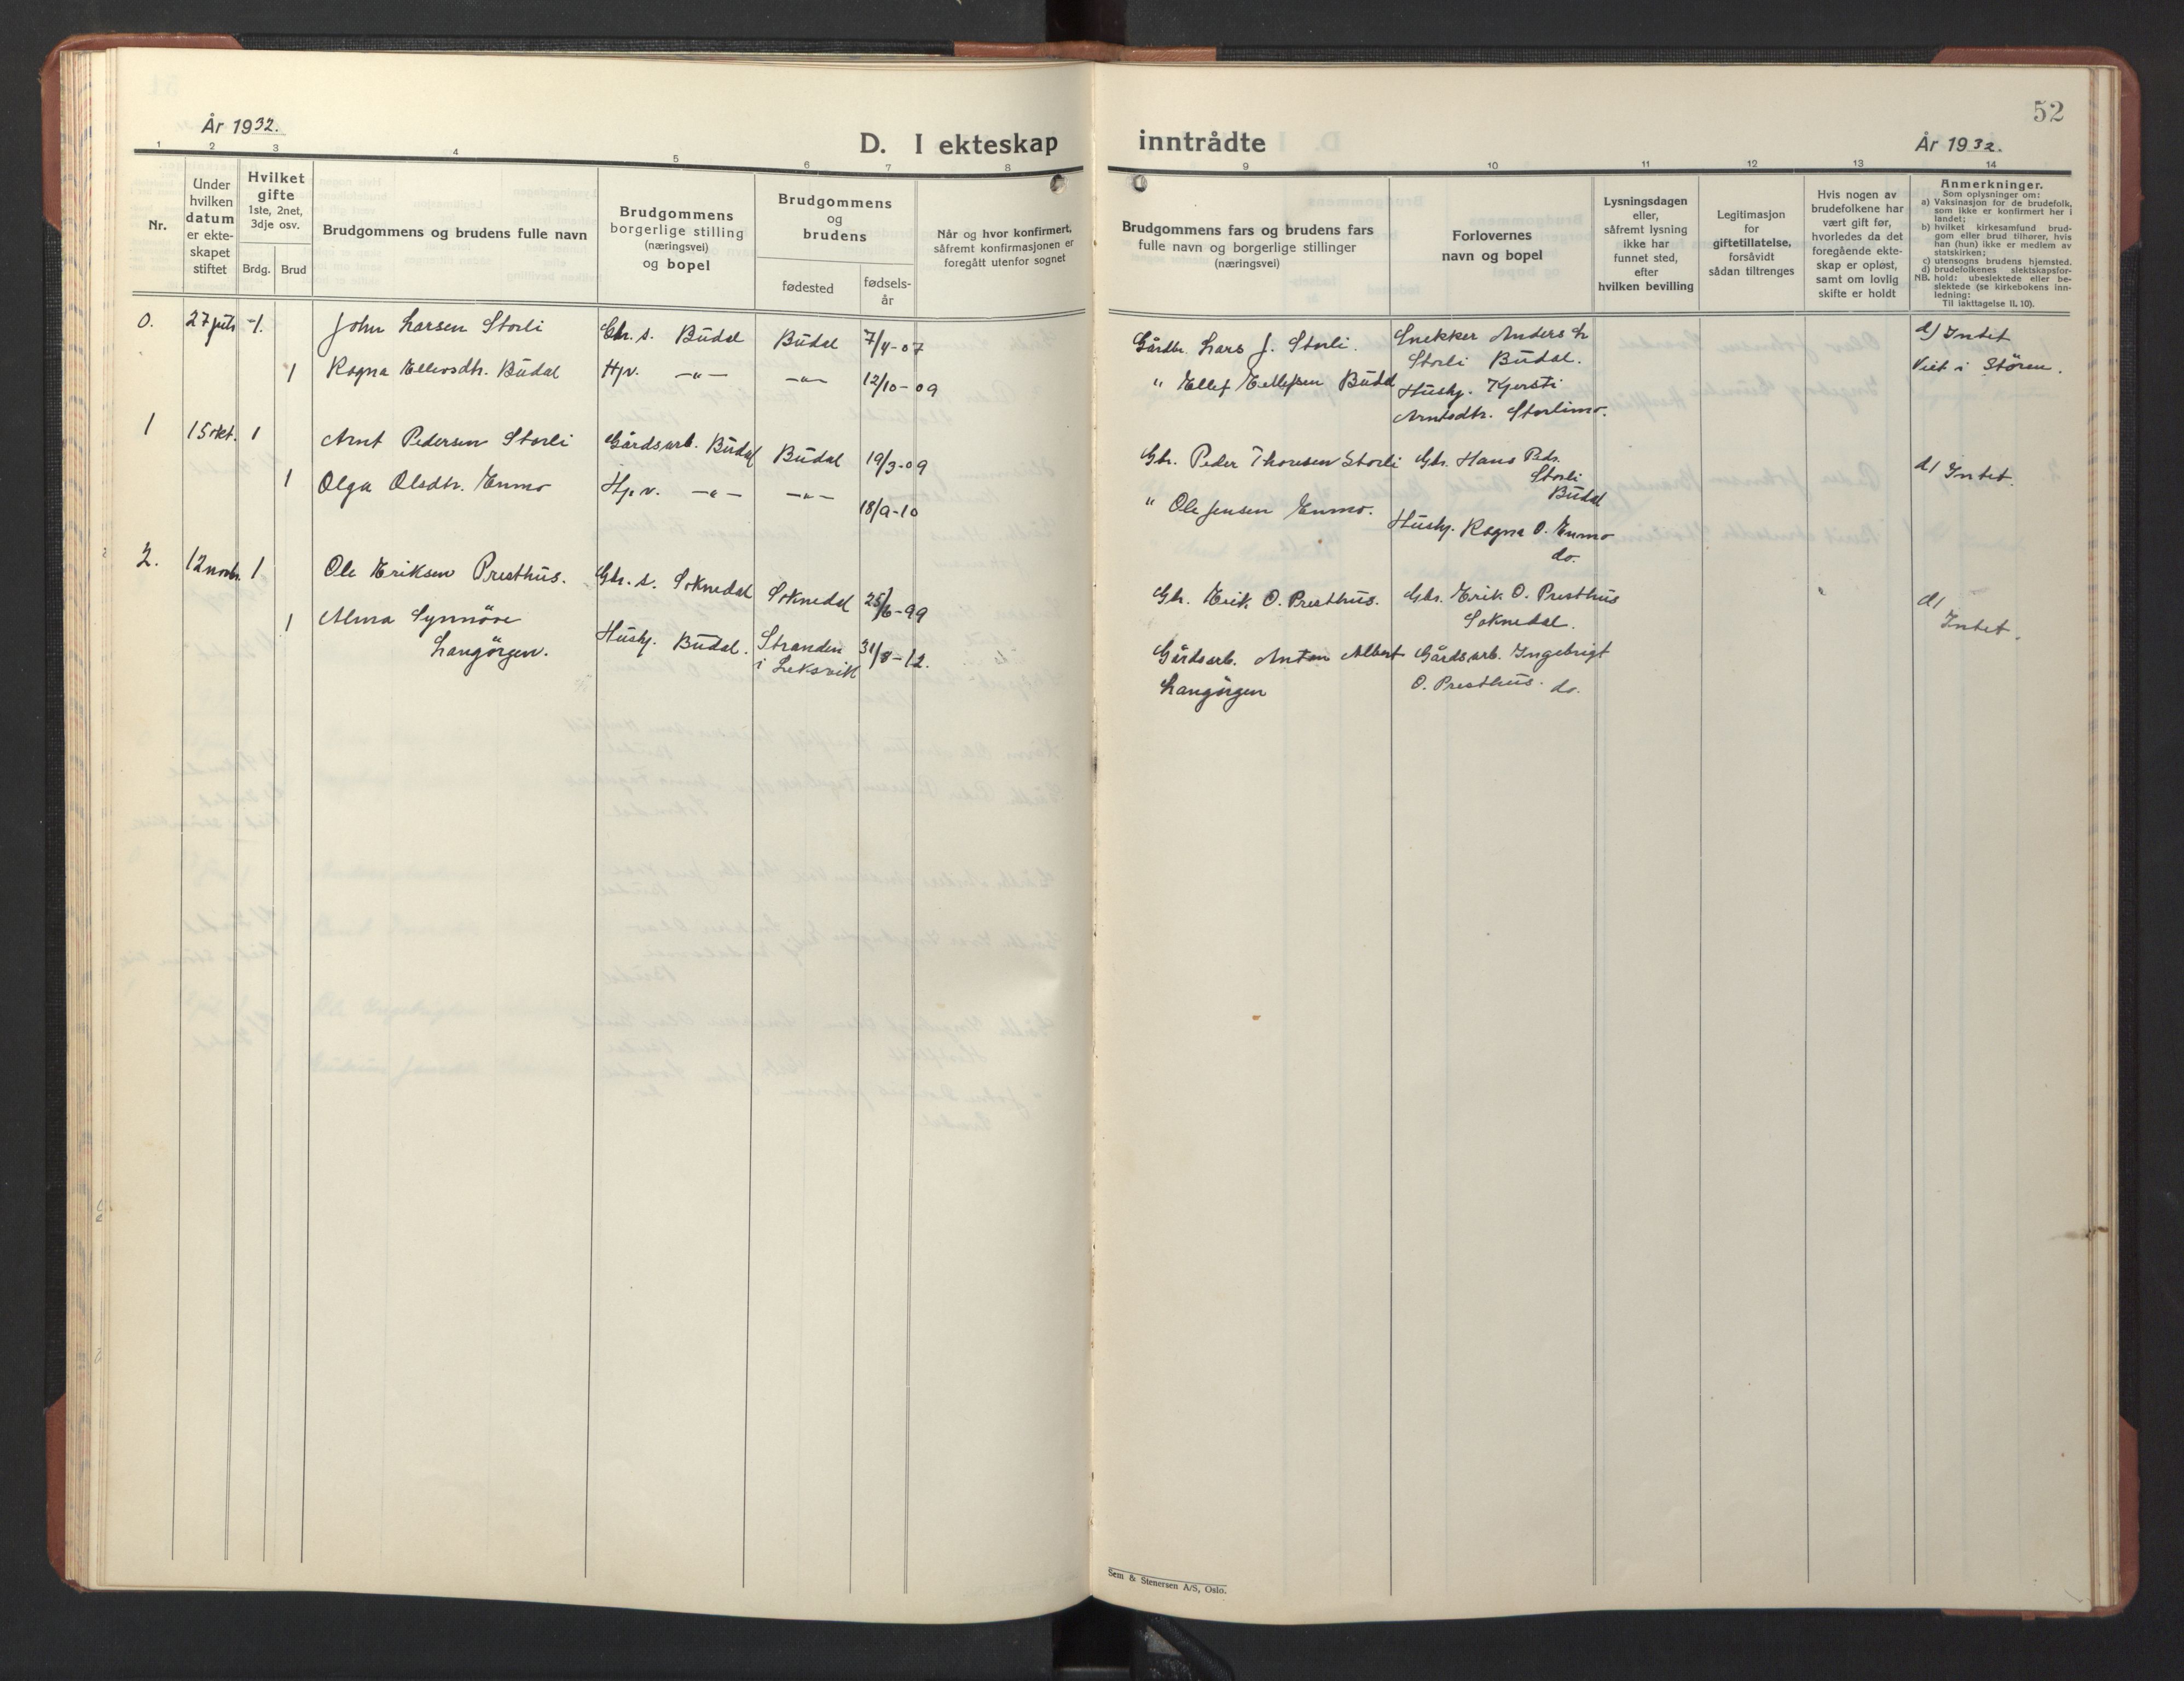 52
År 1932.
D. I ekteskap inntrådte
År 1932.
1 2 3 4 5 6 7 8 9 10 11 12 13 14
Nr.
Under
hvilken
datum
er ekte-
skapet
stiftet
Hvilket
gifte
1ste, 2net,
3dje osv.
Brdg. Brud
Brudgommens og brudens fulle navn
Brudgommens
borgerlige stilling
(næringsvei)
og bopel
Brudgommens
og
brudens
fødested
fødsels-
år
Når og hvor konfirmert,
såfremt konfirmasjonen er
foregått utenfor sognet
Brudgommens fars og brudens fars
fulle navn og borgerlige stillinger
(næringsvei)
Forlovernes
navn og bopel
Lysningsdagen
eller,
såfremt lysning
ikke har
funnet sted,
efter
hvilken bevilling
Legitimasjon
for
giftetillatelse,
forsåvidt
sådan tiltrenges
Hvis nogen av
brudefolkene har
vært gift før,
hvorledes da det
foregående ekte-
skap er opløst,
samt om lovlig
skifte er holdt
Anmerkninger.
Som oplysninger om:
a) Vaksinasjon for de brudefolk,
som ikke er konfirmert her i
landet;
b) hvilket kirkesamfund brud-
gom eller brud tilhører, hvis
han (hun) ikke er medlem av
statskirken;
c) utensogns brudens hjemsted.
d) brudefolkenes slektskapsfor-
NB. hold: ubeslektede eller be-
slektede (se kirkebokens inn-
ledning:
Til iakttagelse II. 10).
0. 27 juli 1. John Larsen Storli Gbr. s. Budal Budal 7/4-07 Gårdbr. Lars J. Storli. Snekker Anders L d) Intet
Storli Budal. Viet i Støren.
1 Ragna Ellevsdtr. Budal Hjv. —"— —"— 12/10-09 " Ellef Ellefsen Budal Hushj. Kjersti
Arntsdtr. Storlimo.
1 15 okt. 1 Arnt Pedersen Storli Gårdsarb. Budal Budal 19/3-09 Gbr. Peder Thoresen Storli Gbr. Hans Peds. d) Intet.
Storli
Budal
1 Olga Olsdtr. Enmo Hjv. —"— —"— 18/9-10 " Ole Jensen Enmo. Hushj. Ragna O. Enmo
do.
2. 12 novbr. 1 Ole Eriksen Presthus. Gbr. s. Soknedal Soknedal 25/6-99 Gbr. Erik O. Presthus. Gbr. Erik O. Presthus d)
Soknedal. Intet.
1 Alma Synnöve Hushj. Budal. Stranden 31/8-12. Gårdsarb. Anton Albert Gårdsarb. Ingebrigt
Langörgen. i Leksvik Langörgen O. Presthus. do.
Sem & Stenersen A/S, Oslo.